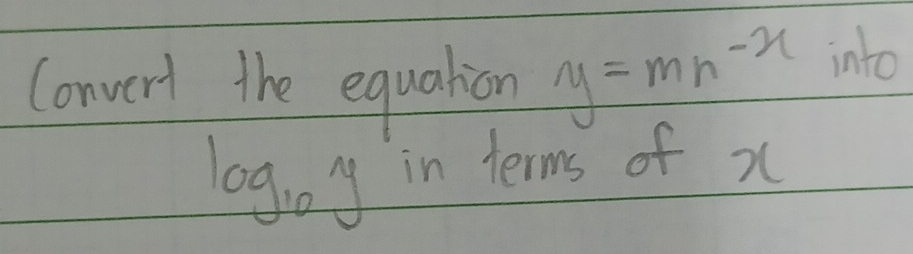 Convert the equation y = mn⁻ˣ into
log₁₀ y in terms of x